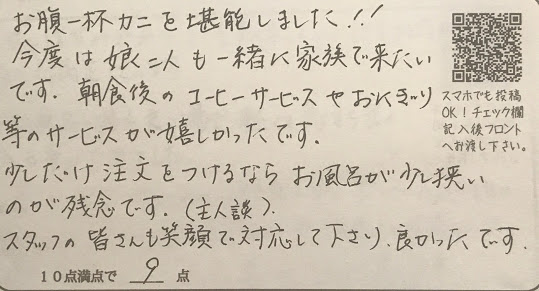 お腹一杯カニを堪能しました!!
今度は娘二人も一緒に家族で来たい
です。朝食後のコーヒーサービスやおにぎり
等のサービスが嬉しかったです。
少しだけ注文をつけるならお風呂が少し狭い
のが残念です。(主人談)
スタッフの皆さんも笑顔で対応して下さり、良かったです。
10点満点で 9 点
スマホでも投稿
OK!チェック欄
記入後フロント
へお渡し下さい。